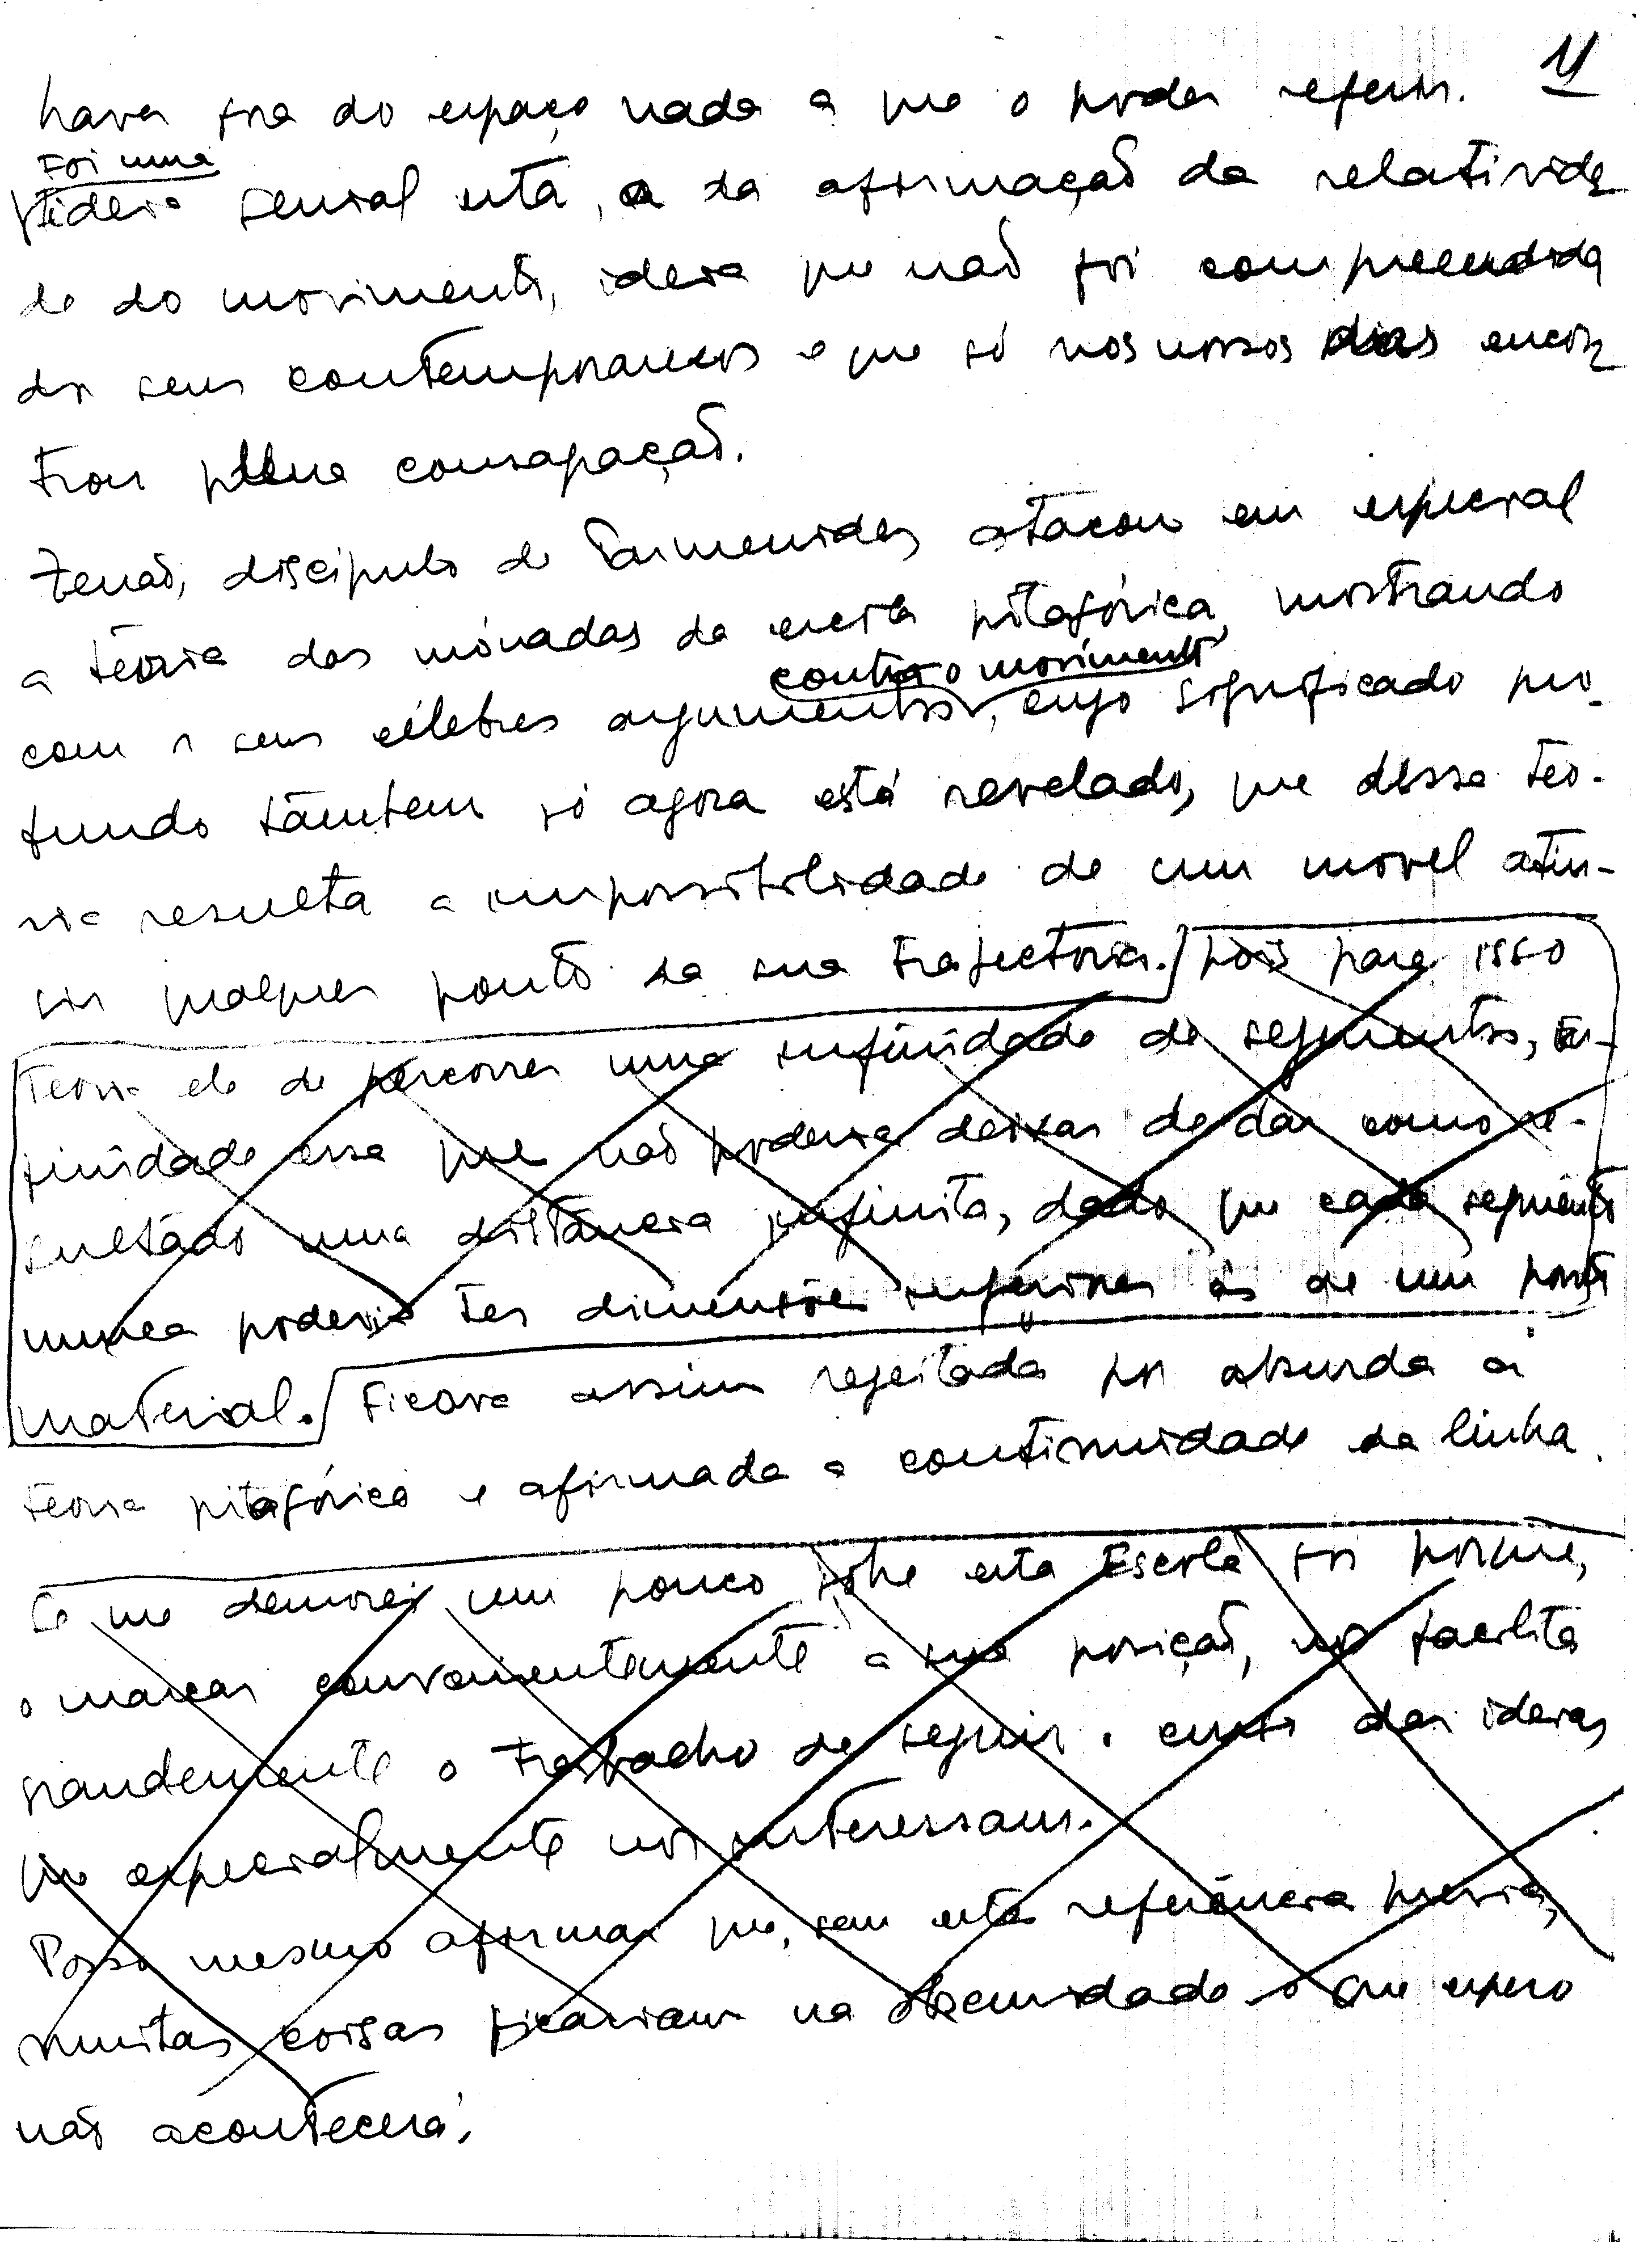 11
haver fora do espaço nada a que o poder referir.
Foi uma
ideia genial esta, a da afirmação da relativida
de do movimento, ideia que não foi compreendida
dos seus contemporaneos e que só nos nossos dias encon
trou plena consagração.
Zenão, discipulo de Parmenides, atacou em especial
a teoria das mónadas da escola pitagórica, mostrando
contra o movimento
com os seus célebres argumentos, cujo significado pro-
fundo tâmbem só agora está revelado, que dessa teo-
ria resulta a impossibilidade de um movel atin-
gir qualquer ponto da sua trajectoria. pois para isso
teria ele de percorrer uma infinidade de segmentos, in-
finidade essa que não poderia deixar de dar como re-
sultado uma distância infinita, dado que cada segmento
nunca poderia ter dimensões inferiores às de um ponto
material. Ficava assim rejeitada por absurda a
teoria pitagórica e afirmada a continuidade da linha.
Se me demorei um pouco sobre esta Escola foi porque,
o marcar convenientemente a sua posição, nos facilita
grandemente o trabalho de seguir o curso das ideias
que especialmente nos interessam.
Posso mesmo afirmar que, sem esta referência previa,
muitas coisas ficariam na obscuridade o que espero
não acontecerá.